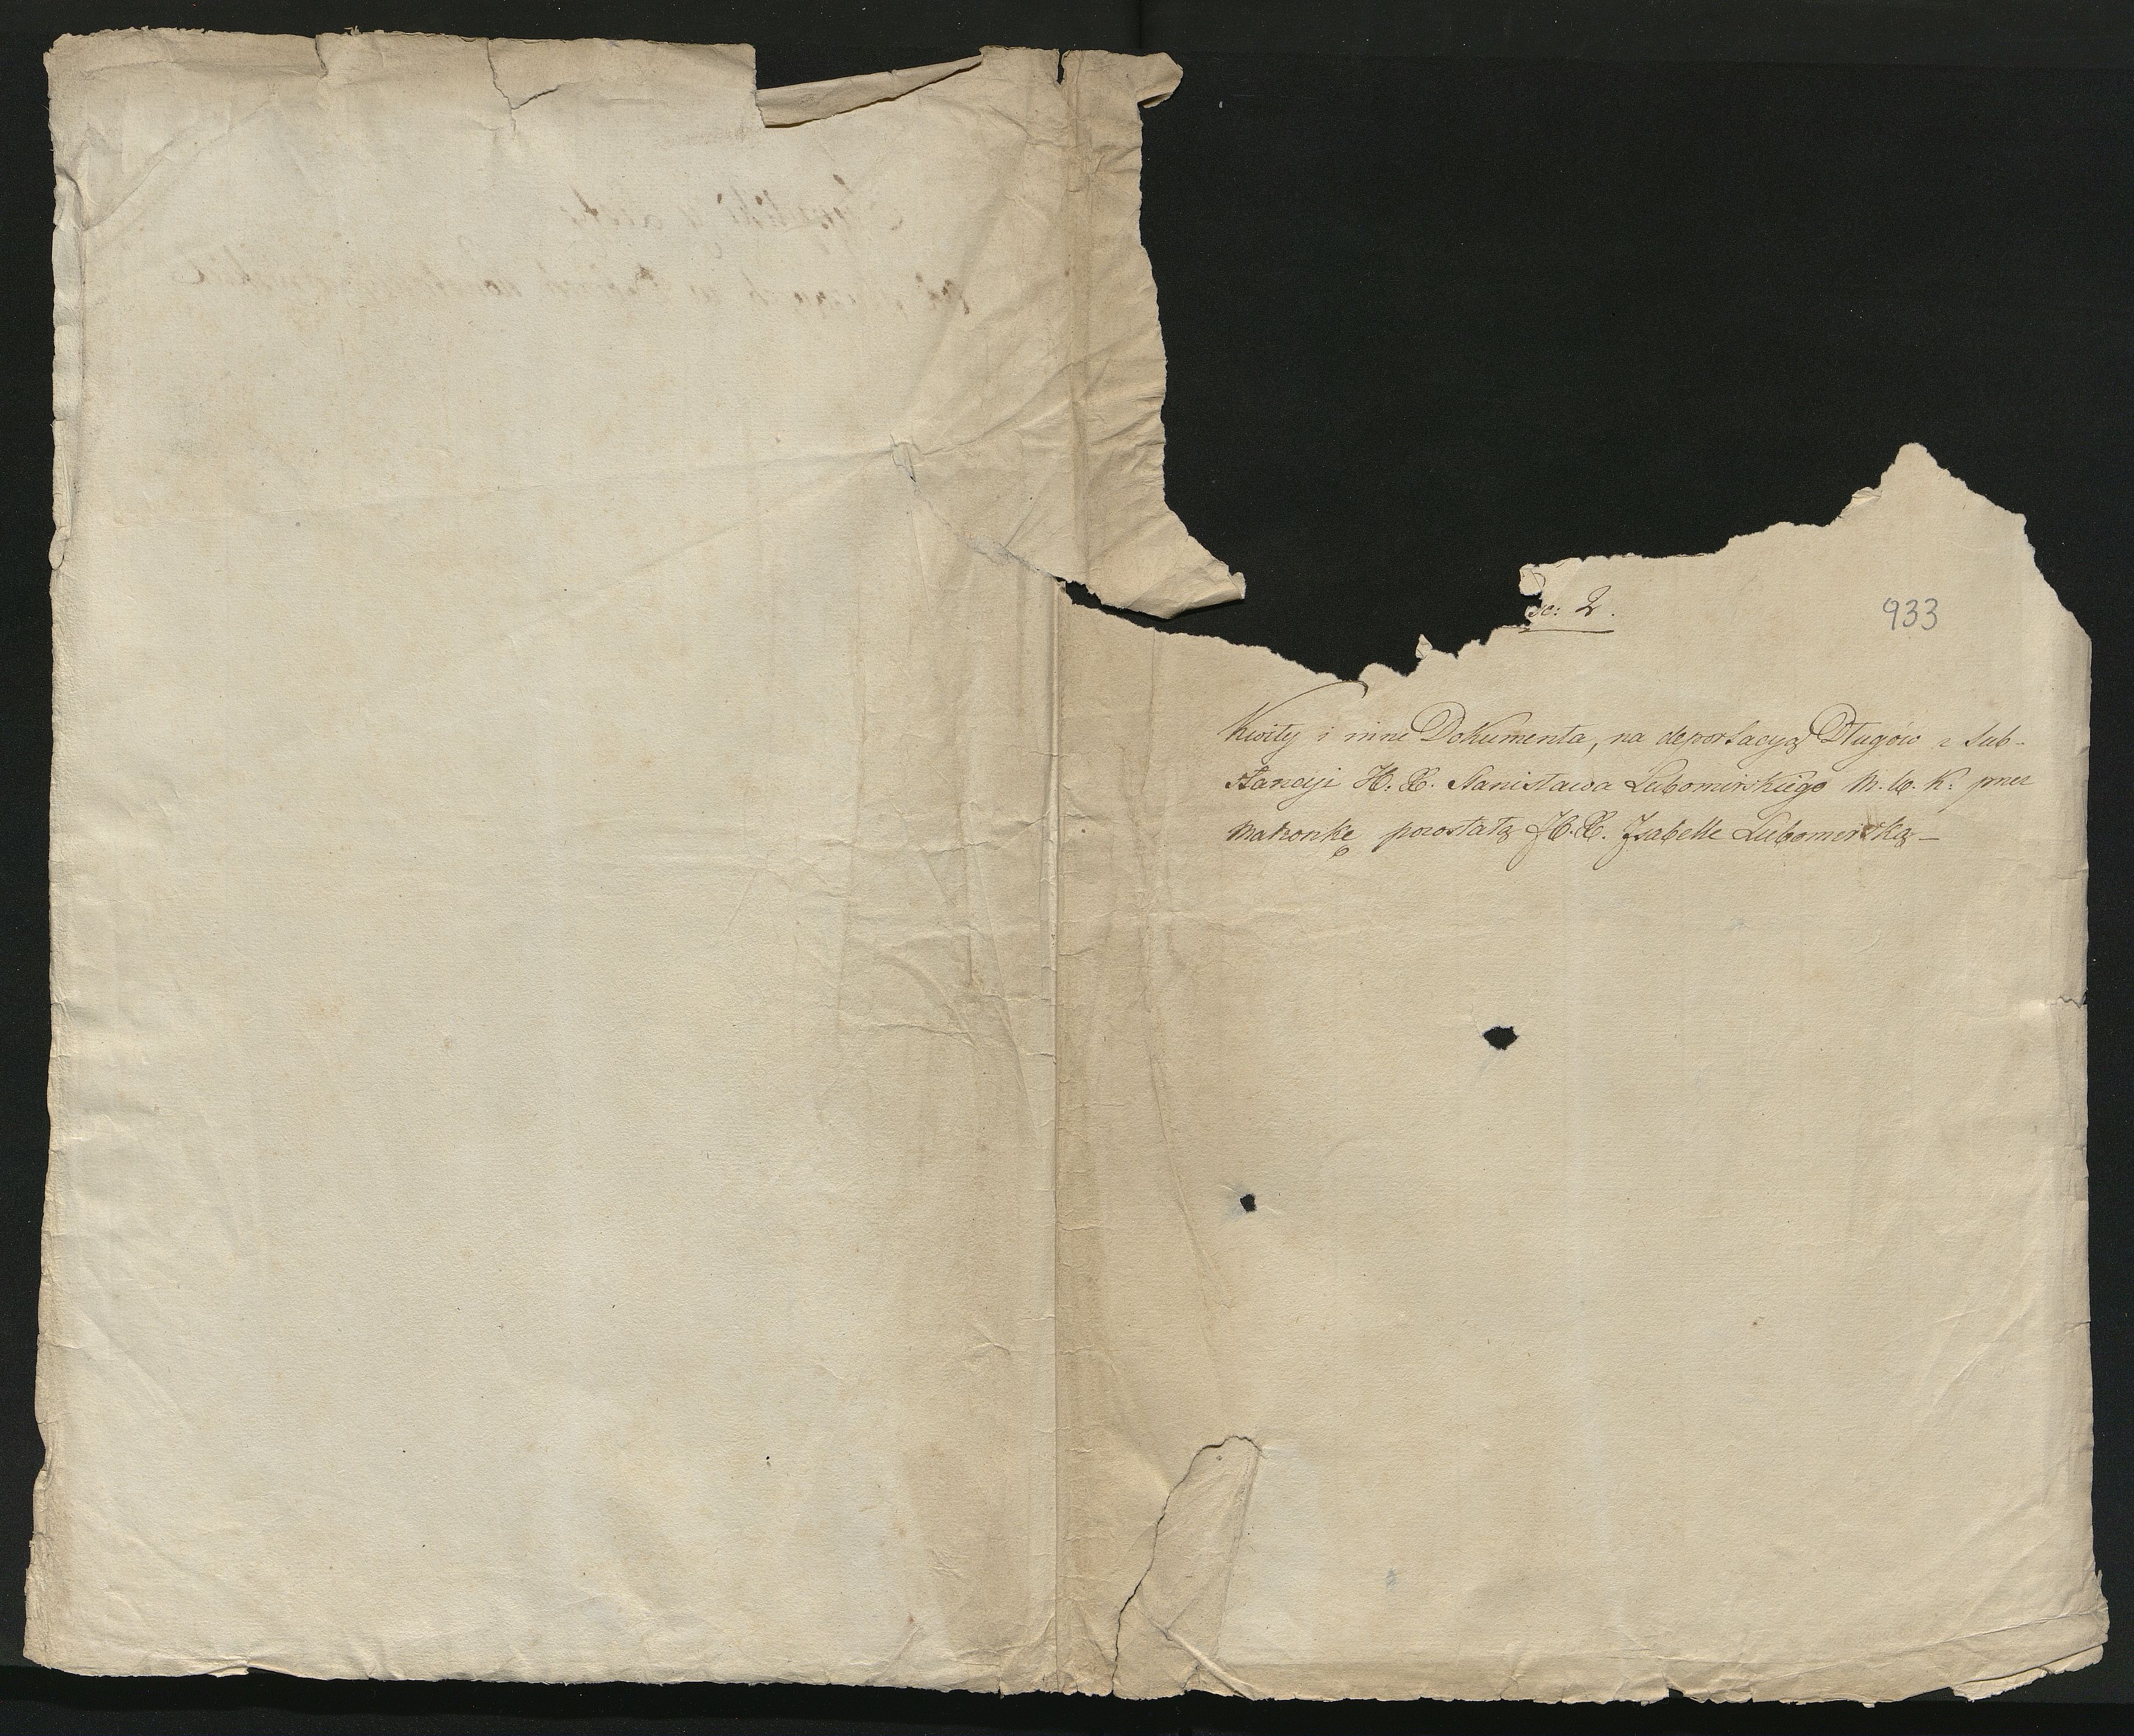 sc: 2.
933
Kwity i inne Dokumenta, na deportacyą Długów z Sub-
stancyi H. X. Stanisława Lubomirskiego M. W. K. przez
małżonkę pozostałą H. X. Jsabelle Lubomirską —